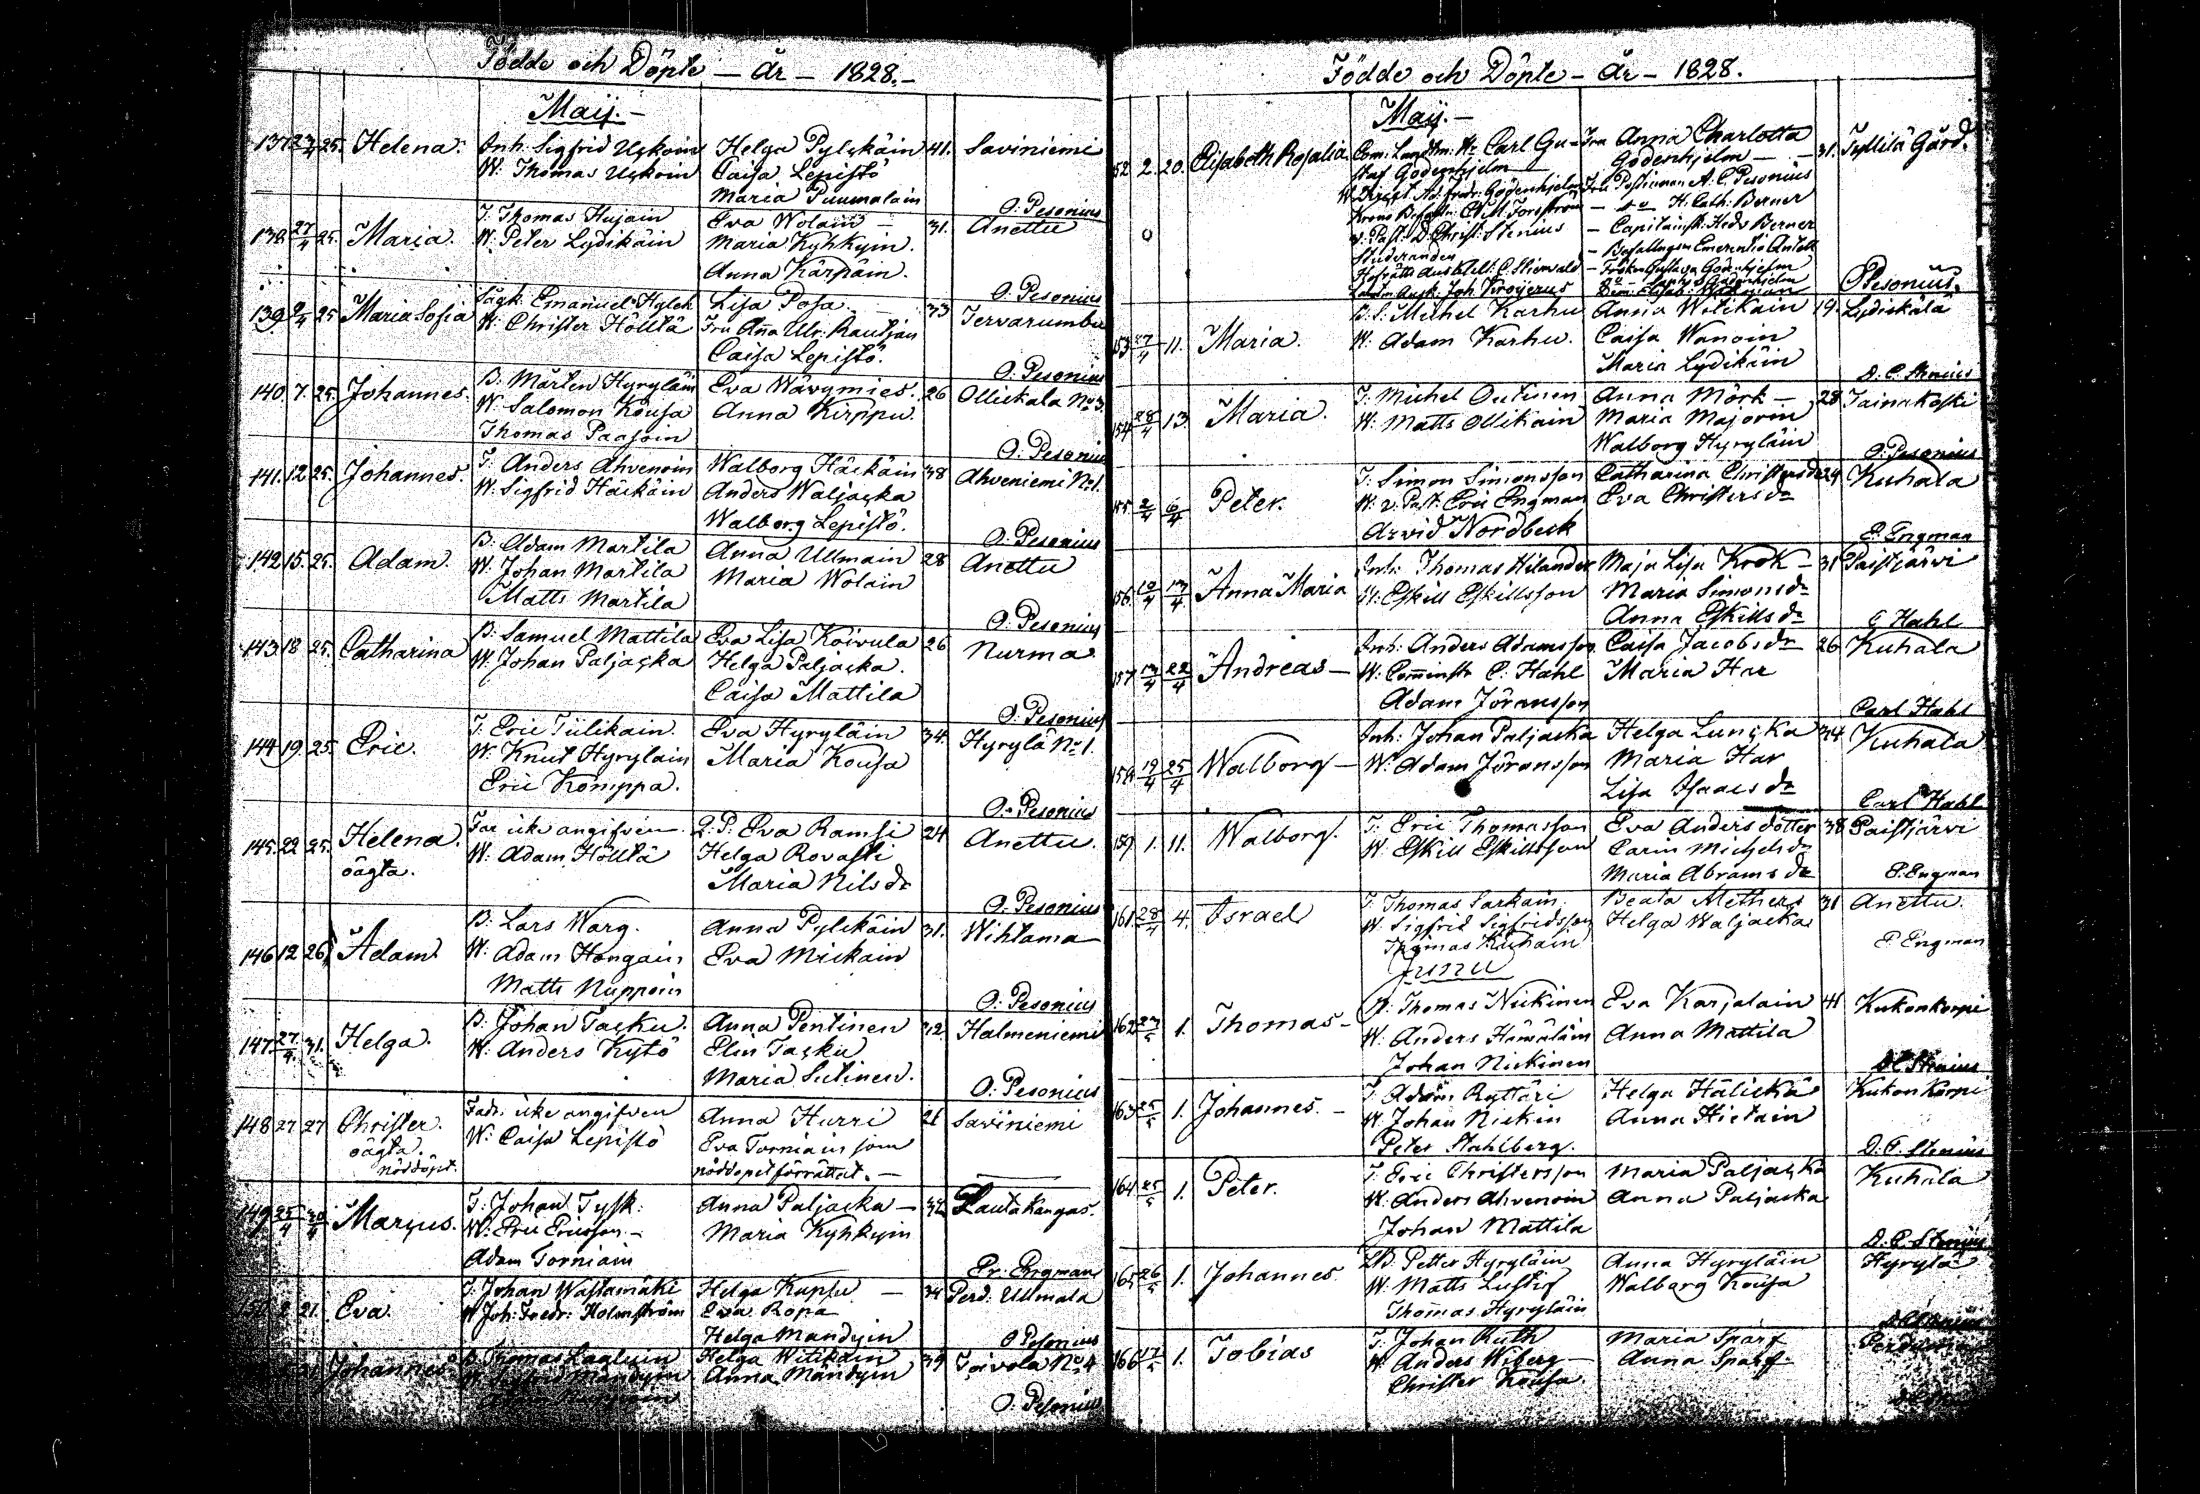 Födde och Döpte – år – 1828.–
Maij.–
137 27/4 25. Helena. Inh. Sigfrid Uskoin Helga Pylckäin 41. Saviniemi
W. Thomas Uskoin Caisa Lepistö
Maria Puumalain O. Pesonius
138. 27/4 25. Maria. T. Thomas Hujain Eva Wolain – 31. Anettu
W. Peter Lydikäin Maria Kyhkyin.
Anna Kärpäin. O. Pesonius
139 2/4 25 Maria Sofia Emanuel Lisa Posa. – 33 Jervarumbu
W. Christer Hölltä Fru Aña Ulr. Rautjan
Caisa Lepistö. O. Pesonius
140. 7. 25. Johannes. B. Mårten Hyryläin Eva Wäwymies. 26 Ollickala No 3.
W. Salomon Kousa Anna Kirppu.
Thomas Paasoin O. Pesonius
141. 12 25. Johannes. T. Anders Ahvenoin Walborg Häckäin 38 Ahveniemi No 1.
W. Sigfrid Häckäin Anders Waljacka
Walborg Lepistö. O. Pesonius
142 15. 25. Adam. B. Adam Martila Anna Ullmain 28 Anettu
W. Johan Martila Maria Wolain
Matts Martila O. Pesonius
143 18 25. Catharina B. Samuel Mattila Eva Lisa Koivula 26 Nurma
W. Johan Paljacka Helga Paljacka.
Caisa Mattila O. Pesonius
144 19. 25. Eric. T. Eric Tiilikain. Eva Hyryläin 34. Hyrylä No 1.
W. Knut Hyryläin Maria Kousa
Eric Komppa. O. Pesonius
145. 22 25. Helena. Far icke angifven – Q. P. Eva Ramsi 24 Anettu.
oägta. W. Adam Hölltä Helga Rovasti
Maria Nilsdr O. Pesonius
146 12 26. Adam. B. Lars Warg. Anna Pylckäin 31. Wihtama
W. Adam Hongain Eva Mickain
Matts Nuppoin O. Pesonius
147 27/4 31. Helga. B. Johan Tasku. Anna Pentinen 32. Halmeniemi
W. Anders Kytö Elin Tasku
Maria Sutinen. O. Pesonius
148 27 27 Christer. Fadr. icke angifven Anna Hurri 21 Saviniemi
oägta. W. Caisa Lepistö Eva Torniain som
nöddöpt. nöddopet förrättat. –
149. 25/4 30/4 Marcus. T. Johan Tysk. Anna Paljacka – 32 Lautakangas.
W. Eric Ericsson – Maria Kyhkyin
Adam Torniain Er. Engman
2. 21. Eva. T. Johan Wastamäki Helga Kuppu – 34 Perd. Ullmala
W. Joh. Fredr. Holmström Eva Ropa
Helga Mandyin O. Pesonius
Johannes. B. Thomas Helga Witikäin 39 Toivola No 4
Mandyin Anna Mandyin
O. Pesonius
Födde och Döpte – år – 1828.
Maij. –
152 2. 20. Elisabeth Rosalia. Com. Landtm. Hr Carl Gu- Fru Anna Charlotta 31. Tyllilä Gård.
staf Godenhjelm Godenhjelm –
Godenhjelm Fru Postiinnan A. C. Pesonius
Krono Torsström – do H. Cath. Berner
v. Past. D. Christ. Stenius – Capitainsk. Hedv Berner
Studeranden – Emerentia
Hofrätts – Fröken Gustava Godenhjelm
Joh. O. Pesonius.
153 27/4 11. Maria. B. S. Michel Karhu Anna Witikain 19. Lydickälä
W. Adam Karhu. Caisa Wanoin
Maria Lydikäin D. C. Stenius
154 28/4 13. Maria. T. Michel Outinen Anna Mörk – 28 Jainakoski
W. Matts Ollikain Maria Majorin
Walborg Hyryläin O. Pesonius
155 2/4 6/4 Peter. T. Simon Simonsson Catharina Christersdr 24 Kuhala
W. v. Past. Eric Engman Eva Christersdr
Arvid Nordbeck E. Engman
156. 10/4 13/4 Anna Maria Inh. Thomas Hilander Maja Lisa Krok – 31 Paistjärvi
W. Eskill Eskillsson Maria Simonsdr
Anna Eskillsdr C Hahl
157 13/4 22/4 Andreas – Inh. Anders Adamsson Caisa Jacobsdr 26 Kuhala
W. Comministr C. Hahl Maria Har
Adam Jöransson Carl Hahl
158 19/4 25/4 Walborg – Inh. Johan Paljacka Helga Luncka 44 Kuhala
W. Adam Jöransson Maria Har
Lisa Isaacsdr Carl Hahl
159 1. 11. Walborg. T. Eric Thomasson Eva Andersdotter 38 Paistjärvi
W. Eskill Eskillsson Carin Michelsdr
Maria Abramsdr E. Engman
161 28/4 4. Israel T. Thomas Sarkain Beata Methers 31 Anettu.
W. Sigfrid Sigfridsson Helga Waljacka
Thomas Kuhain E. Engman
Junii
162 23/5 1. Thomas – B. Thomas Nickinen Eva Karjalain 41 Kukonkorpi
W. Anders Hämäläin Anna Mattila
Johan Nickinen D. C. Stenius
163 25/5 1. Johannes. – T. Adam Ryttäri Helga Hälickä Kukonkorpi
W. Johan Nickin Anna Hietain
Peter Stahlberg. D. C. Stenius
164 25/5 1. Peter. T. Eric Christersson Maria Paljacka Kuhala
W. Anders Ahvenoin Anna Paljacka
Johan Mattila D. C. Stenius
165 26/5 1. Johannes Petter Hyryläin Anna Hyryläin Hyrylä
W. Matts Lustig Walborg Kousa
Thomas Hyryläin D. C. Stenius
166 17/5 1. Tobias T. Johan Ruth Maria Sparf
W. Anders Wiberg – Anna Sparf.
Christer Kousa.